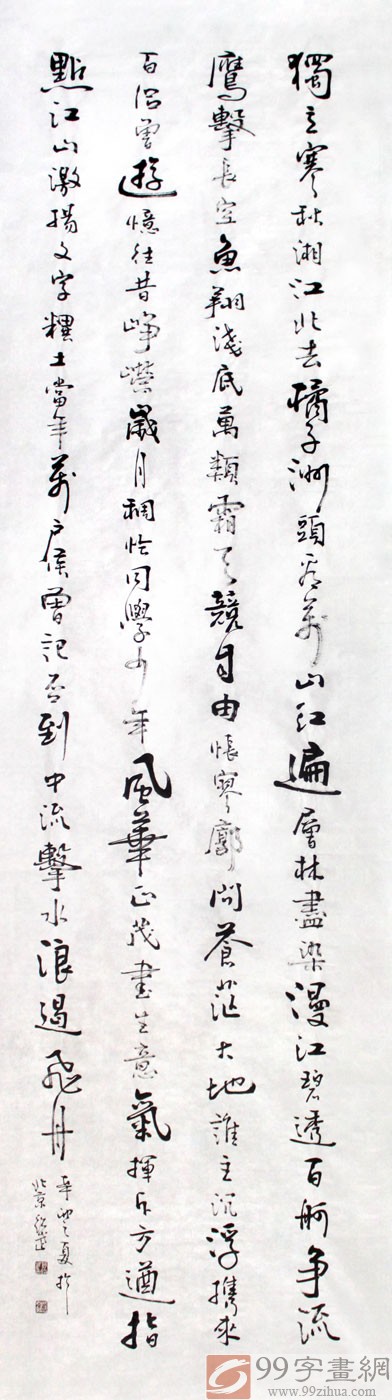 獨立寒秋湘江北去橘子洲頭看萬山紅遍層林盡染漫江碧透百舸争流
鹰擊長空魚翔淺底萬類霜天競自由悵寥廓問蒼茫大地誰主沉浮携來
百侣曾遊憶往昔崢嶸歲月稠恰同學少年風華正茂書生意氣揮斥方遒指
點江山激揚文字糞土當年萬户侯曾記否到中流擊水浪遏飛舟
夏於
北京
99字畫網
www.99zihua.com